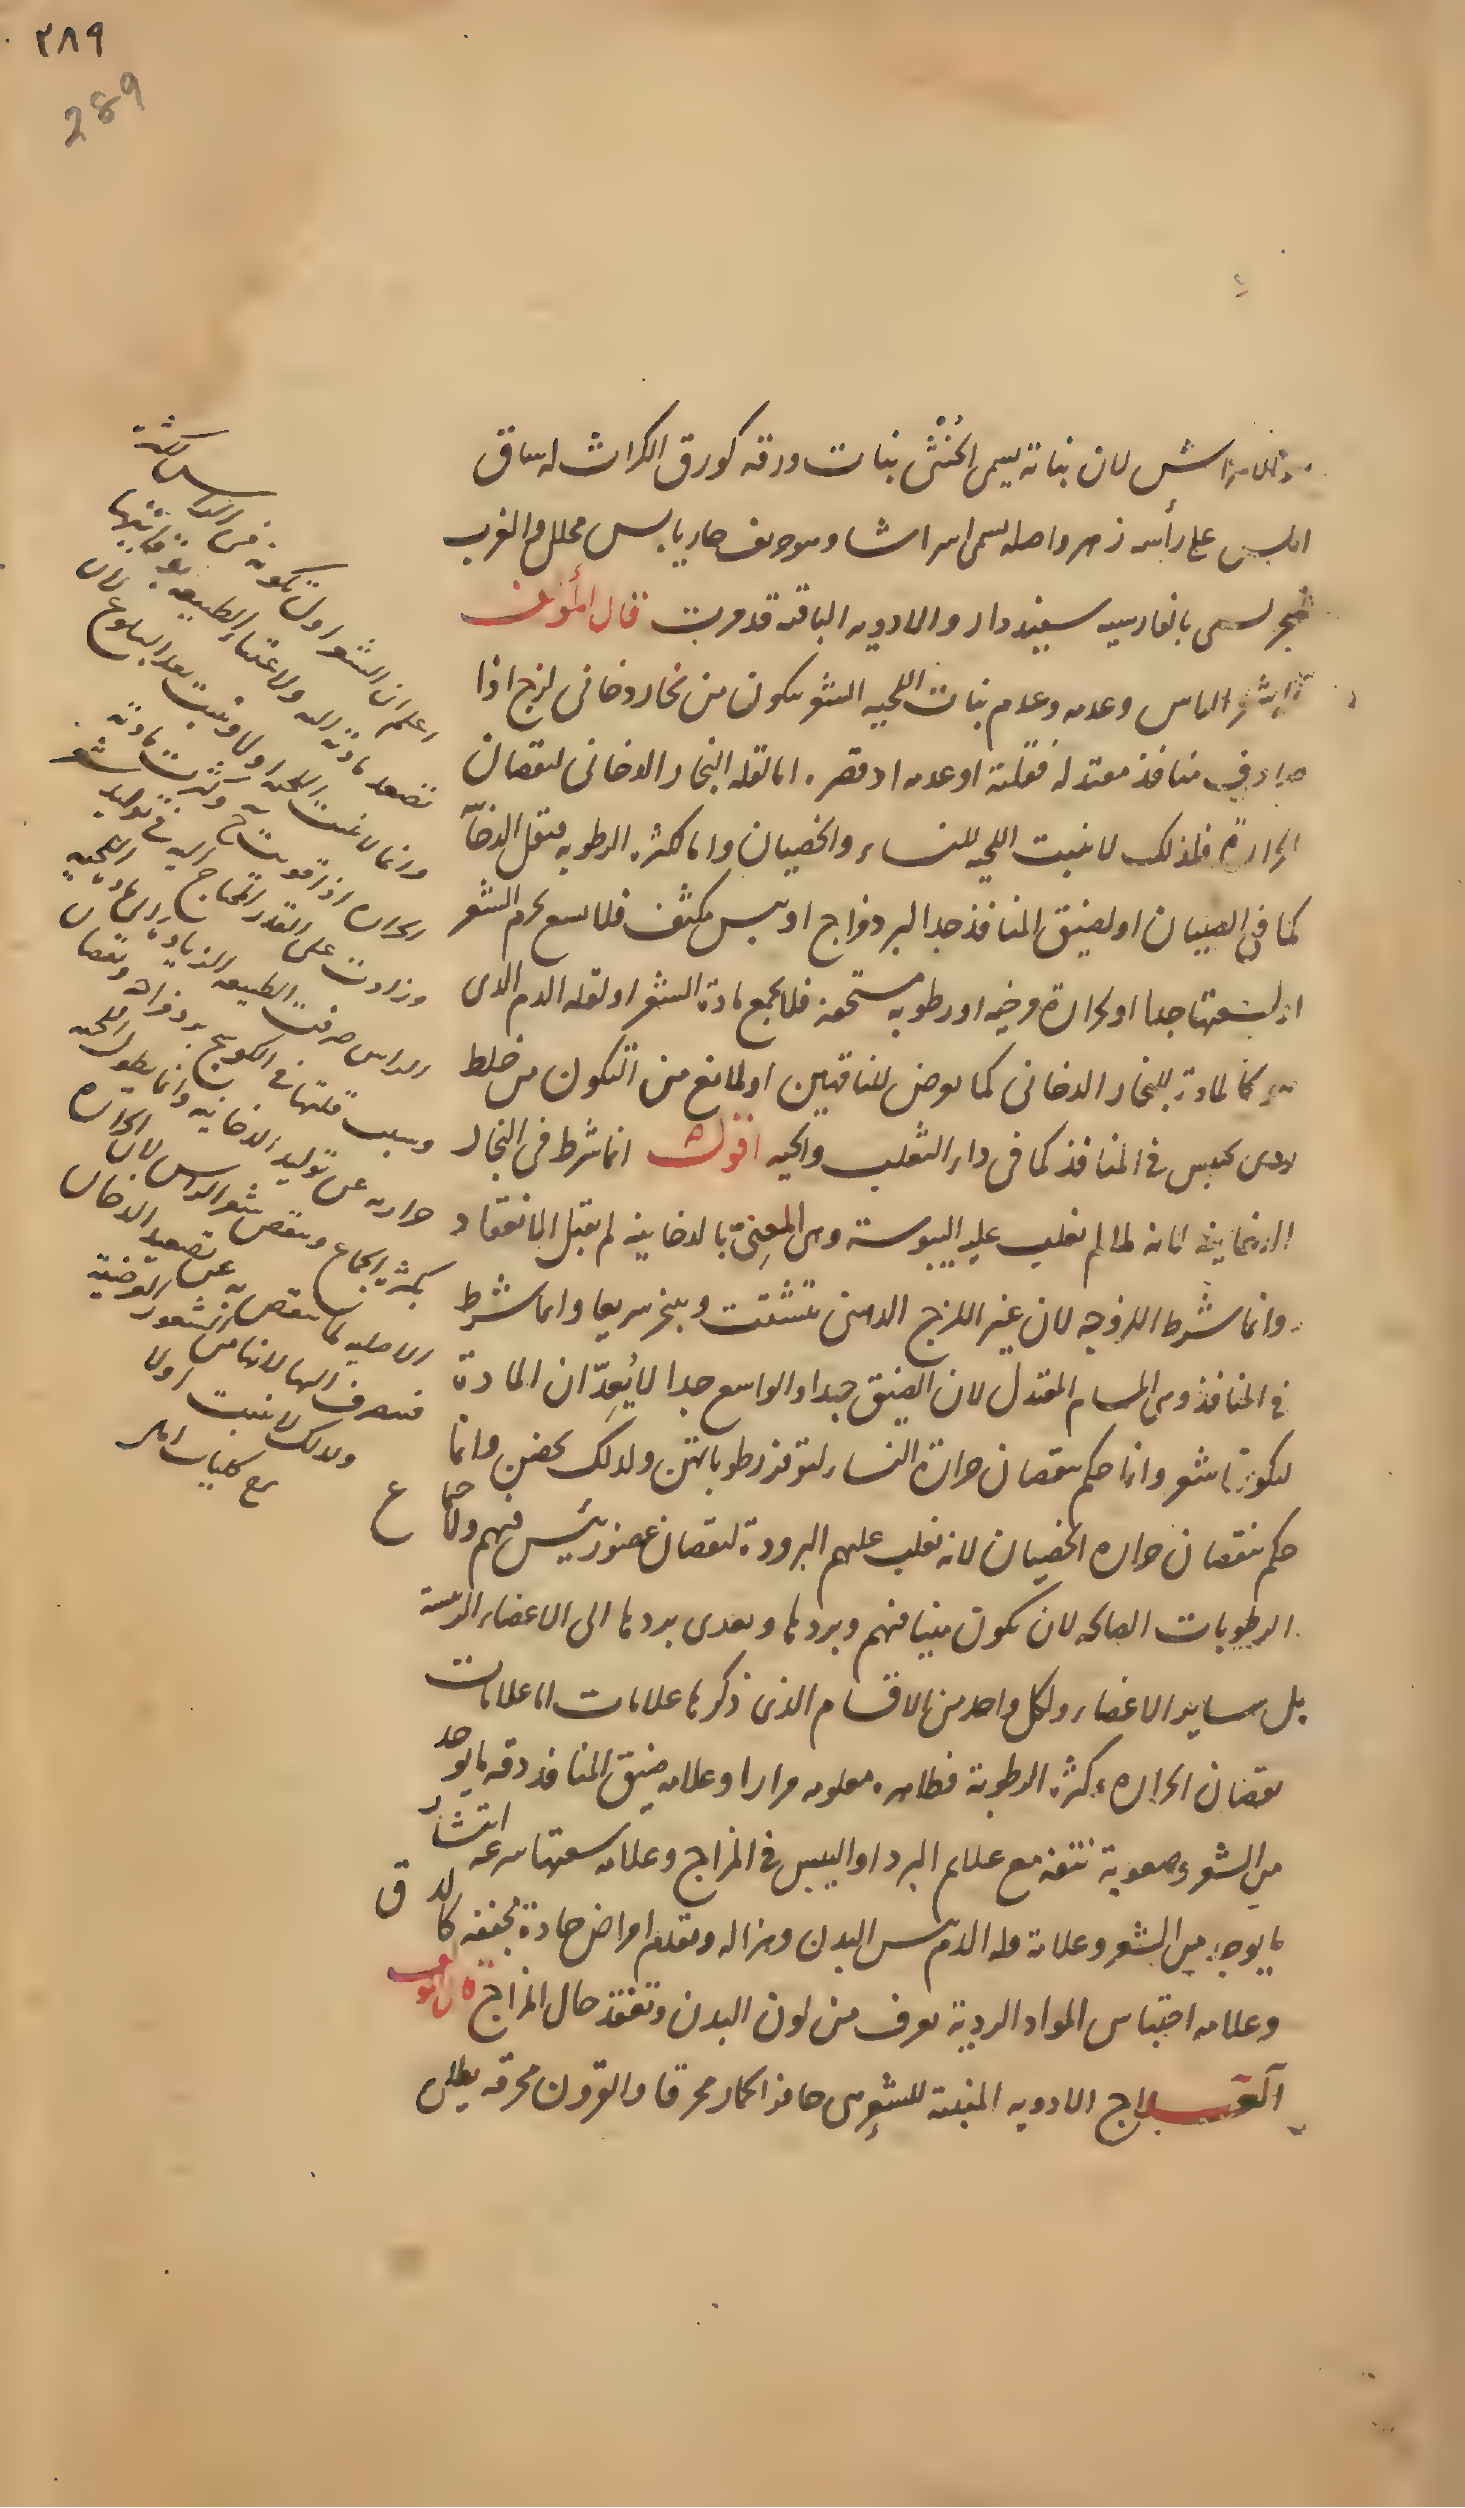 ٢٨٩
289
لان نباته يسمى الخنثى نبات ورقه كورق الكراث له ساق
املس على رأسه زهر واصله يسمى اسراشا وهو حريف حار يابس محلل والغرب
شجر يسمى بالفارسيه سبيددار والادويه الباقيه قد مرت قال المؤلف
الراس وعدمه وعدم نبات اللحيه الشعر يتكون من بخار دخانى لزج اذا
صادف منافذ معتدلة فقلته او عدمه او قصره اما لقله البخار الدخانى لنقصان
الحرارة فلذلك لا ينبت اللحيه للنساء والخصيان واما لكثره الرطوبه فيقل الدخان
كما فى الصبيان او لضيق المنافذ جدا لبرد مزاج او يبس مكثف فلا يسع بجرم الشعر
او لسعتها جدا او لحرارة مرخيه او رطوبه مسخفه فلا يجمع مادة الشعر او لقله الدم الذى
هو كالمادة للبخار الدخانى كما يعرض للناقهين او لمانع من التكون من خلط
ردى يحتبس فى المنافذ كما فى داء الثعلب والحيه اقول انما شرط فى البخار
الدخانية لانه لما لم يغلب عليه اليبوسة وهى المعنية بالدخانيه لم يقبل الانعقاد
وانما شرط اللزوجه لان غير اللزج الدهنى يتشتت ويتبخر سريعا وانما شرط
فى المنافذ وهى المسام المعتدل لان الضيق جدا والواسع جدا لا يُعِدّان المادة
ليكونها شعر وانما حكم بنقصان حرارة النساء لتوفر رطوباتهن ولذلك يحضن وانما
حكم بنقصان حراره الخصيان لانه يغلب عليهم البرودة لنقصان عضو رئيس فيهم
الرطوبات الصالحه لان تكون منيا فيهم وبردها وتعدى بردها الى الاعضاء الرئيسة
بل ساير الاعضاء ولكل واحد من الاقسام الذى ذكرها علامات اما علامات
نقصان الحراره وكثره الرطوبة فظاهره معلومه مرارا وعلامه ضيق المنافذ دقه ما يوجد
من الشعر وصعوبة نتفه مع علايم البرد او اليبس فى المزاج وعلامه سعتها سرعه انتشار
ما يوجد من الشعر وعلامة قله الدم يبس البدن وهزاله وتقدم امراض حادة مجففه كالدق
وعلامه احتباس المواد الردية يعرف من لون البدن وتفقد حال المزاج قال المولف
العلاج الادويه المنبتة للشعر هى حافر الحمار محرقا والقرون محرقه يطلى
اعلم ان الشعر اول تكونه فى الراس لكثرة
تصعد مادته اليه ولاعتناء الطبيعه بوقايتها
وانما لا ينبت اللحيه اولا وينبت بعد البلوغ لان
الحراره اذا قويت ح وكثرت مادته
وزادت على القدر المحتاج اليه فى توليد شعر
الراس صرفت الطبيعه الزياده الى مادة اللحيه
وسبب قلتها فى الكوسج برد مزاجه ونقصان
حرارته عن توليد الدخانيه وانما يطول اللحيه
بكثره الجماع وينقص شعر الراس لان الحرارة
الاصليه لما ينقص به عن تصعيد الدخان
فينصرف اليها لانها من الشعور العرضية
ولذلك لا ينبت اولا